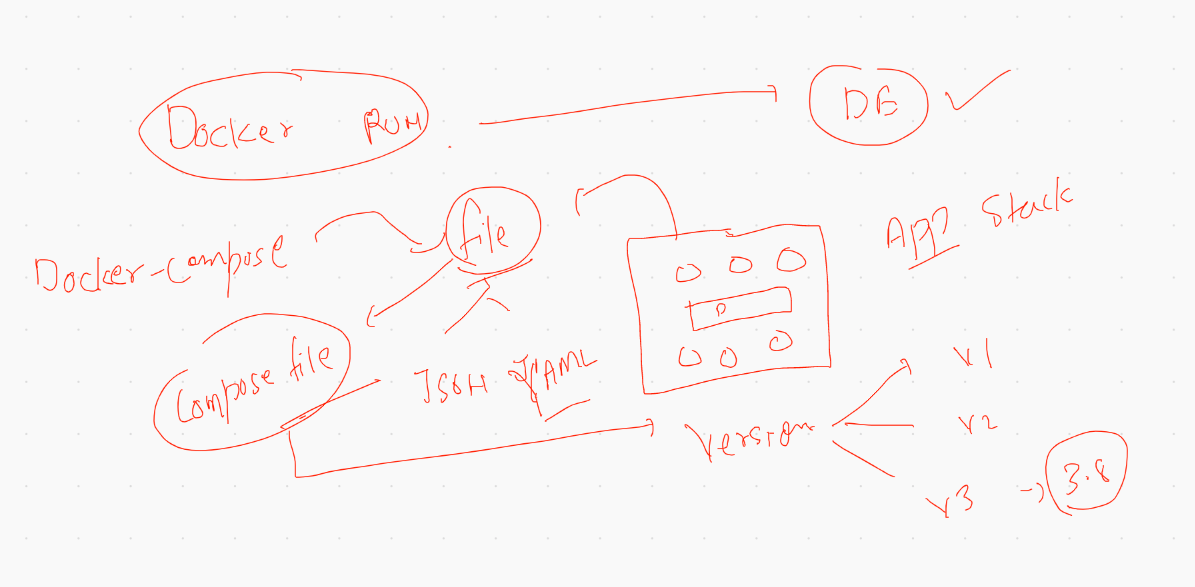 Docker RUN
DE
Docker-compose
file
App Stack
D
Compose file
JSON YAML
Version
v1
v2
v3 -> 3.8